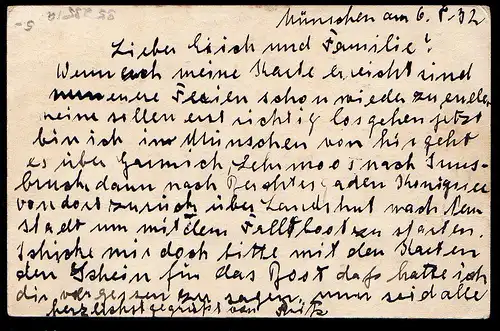 München am 6.8.32
Lieber Erich und Familie!
Wenn euch meine Karte erreicht sind
unsere Ferien schon wieder zu ende
meine sollen erst richtig losgehen jetzt
bin ich in München von hir geht
es über Garmisch nach Inns-
bruck dann nach Berchtesgaden Königssee
von dort zurück über Landshut nach Neu
stadt um mit dem Faltboot zu starten.
Schicke mir doch bitte mit den Karten
den Schein für das Boot daß hatte ich
dir vergessen zu sagen, nun seid alle
herzlichst gegrüßt von Fritz